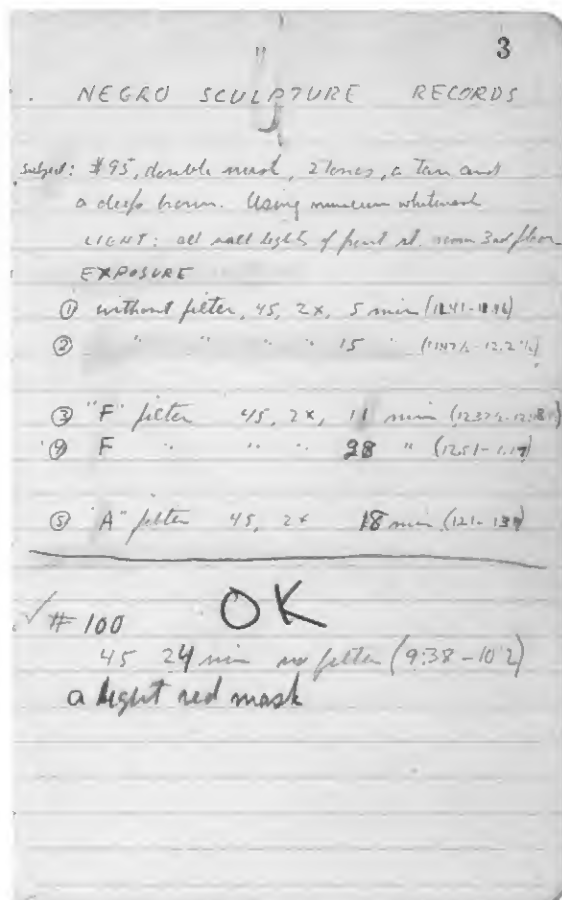 3
NEGRO SCULPTURE RECORDS
Subject: #95, double mask, 2 tones, a tan and
a deep brown. Using museum whitewash
LIGHT: all wall lights of front st. room 3rd floor
EXPOSURE
① without filter, 45, 2x, 5 min
② " " " " 15 "
③ "F" filter 45, 2x, 11 min
④ F " " " 28 "
⑤ "A" filter 45, 2x 18 min
OK
✓ #100
45 24 min no filter (9:38-10:2)
a light red mask